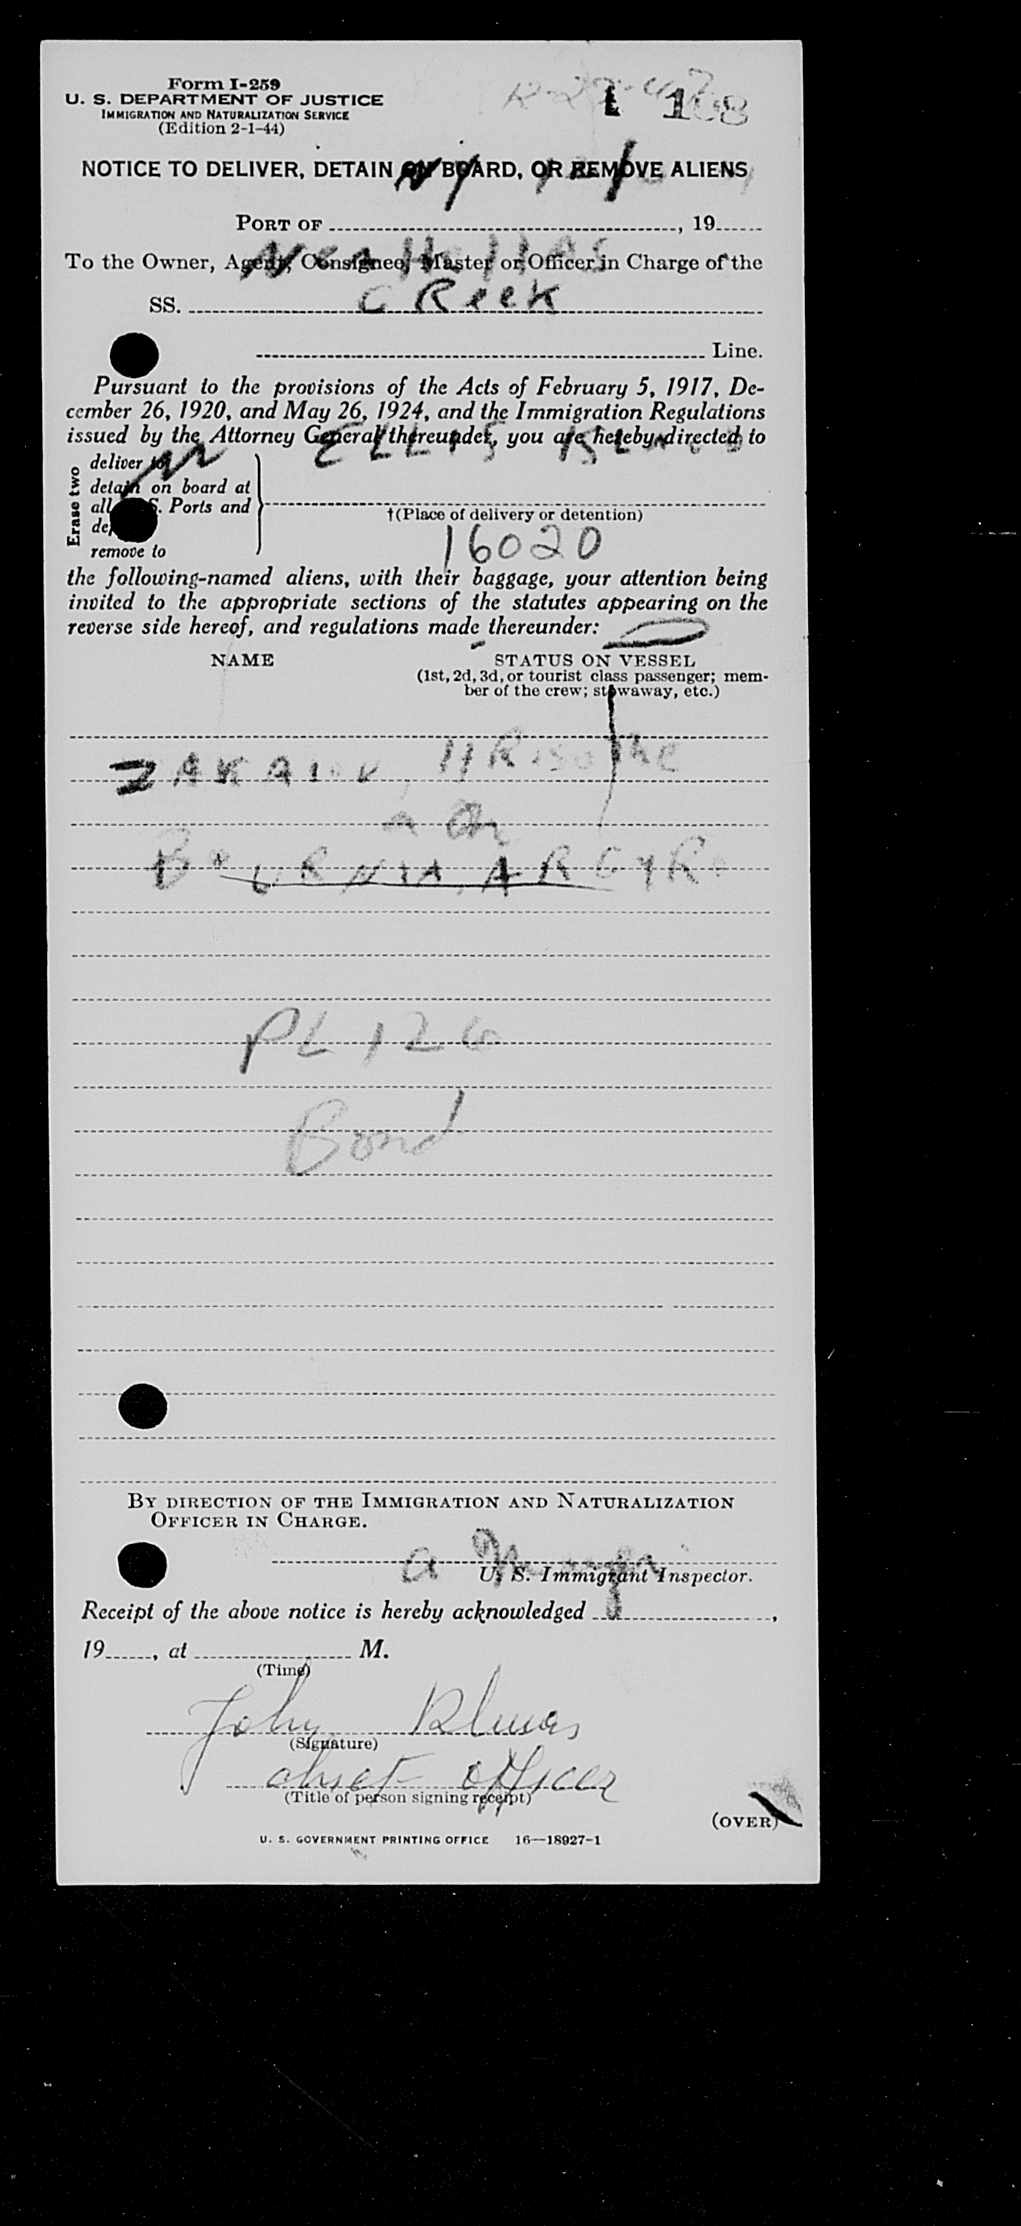 Form I-259
U. S. DEPARTMENT OF JUSTICE
IMMIGRATION AND NATURALIZATION SERVICE
(Edition 2-1-44)
1 168
NOTICE TO DELIVER, DETAIN ON BOARD, OR REMOVE ALIENS
NY
PORT OF , 19
NEA HELLAS
To the Owner, Agent, Consignee, Master or Officer in Charge of the
GREEK
SS.
Line.
Pursuant to the provisions of the Acts of February 5, 1917, De-
cember 26, 1920, and May 26, 1924, and the Immigration Regulations
issued by the Attorney General thereunder, you are hereby directed to
ELLIS ISLAND
Erase two
deliver to
detain on board at
all U.S. Ports and
remove to
†(Place of delivery or detention)
16020
the following-named aliens, with their baggage, your attention being
invited to the appropriate sections of the statutes appearing on the
reverse side hereof, and regulations made thereunder:
NAME STATUS ON VESSEL
(1st, 2d, 3d, or tourist class passenger; mem-
ber of the crew; stowaway, etc.)
BOURNIA, ARGYRO
PL 126
Bond
BY DIRECTION OF THE IMMIGRATION AND NATURALIZATION
OFFICER IN CHARGE.
U. S. Immigrant Inspector.
Receipt of the above notice is hereby acknowledged ,
19 , at M.
(Time)
John
(Signature)
chief officer
(Title of person signing receipt)
(OVER)
U. S. GOVERNMENT PRINTING OFFICE 16—18927-1